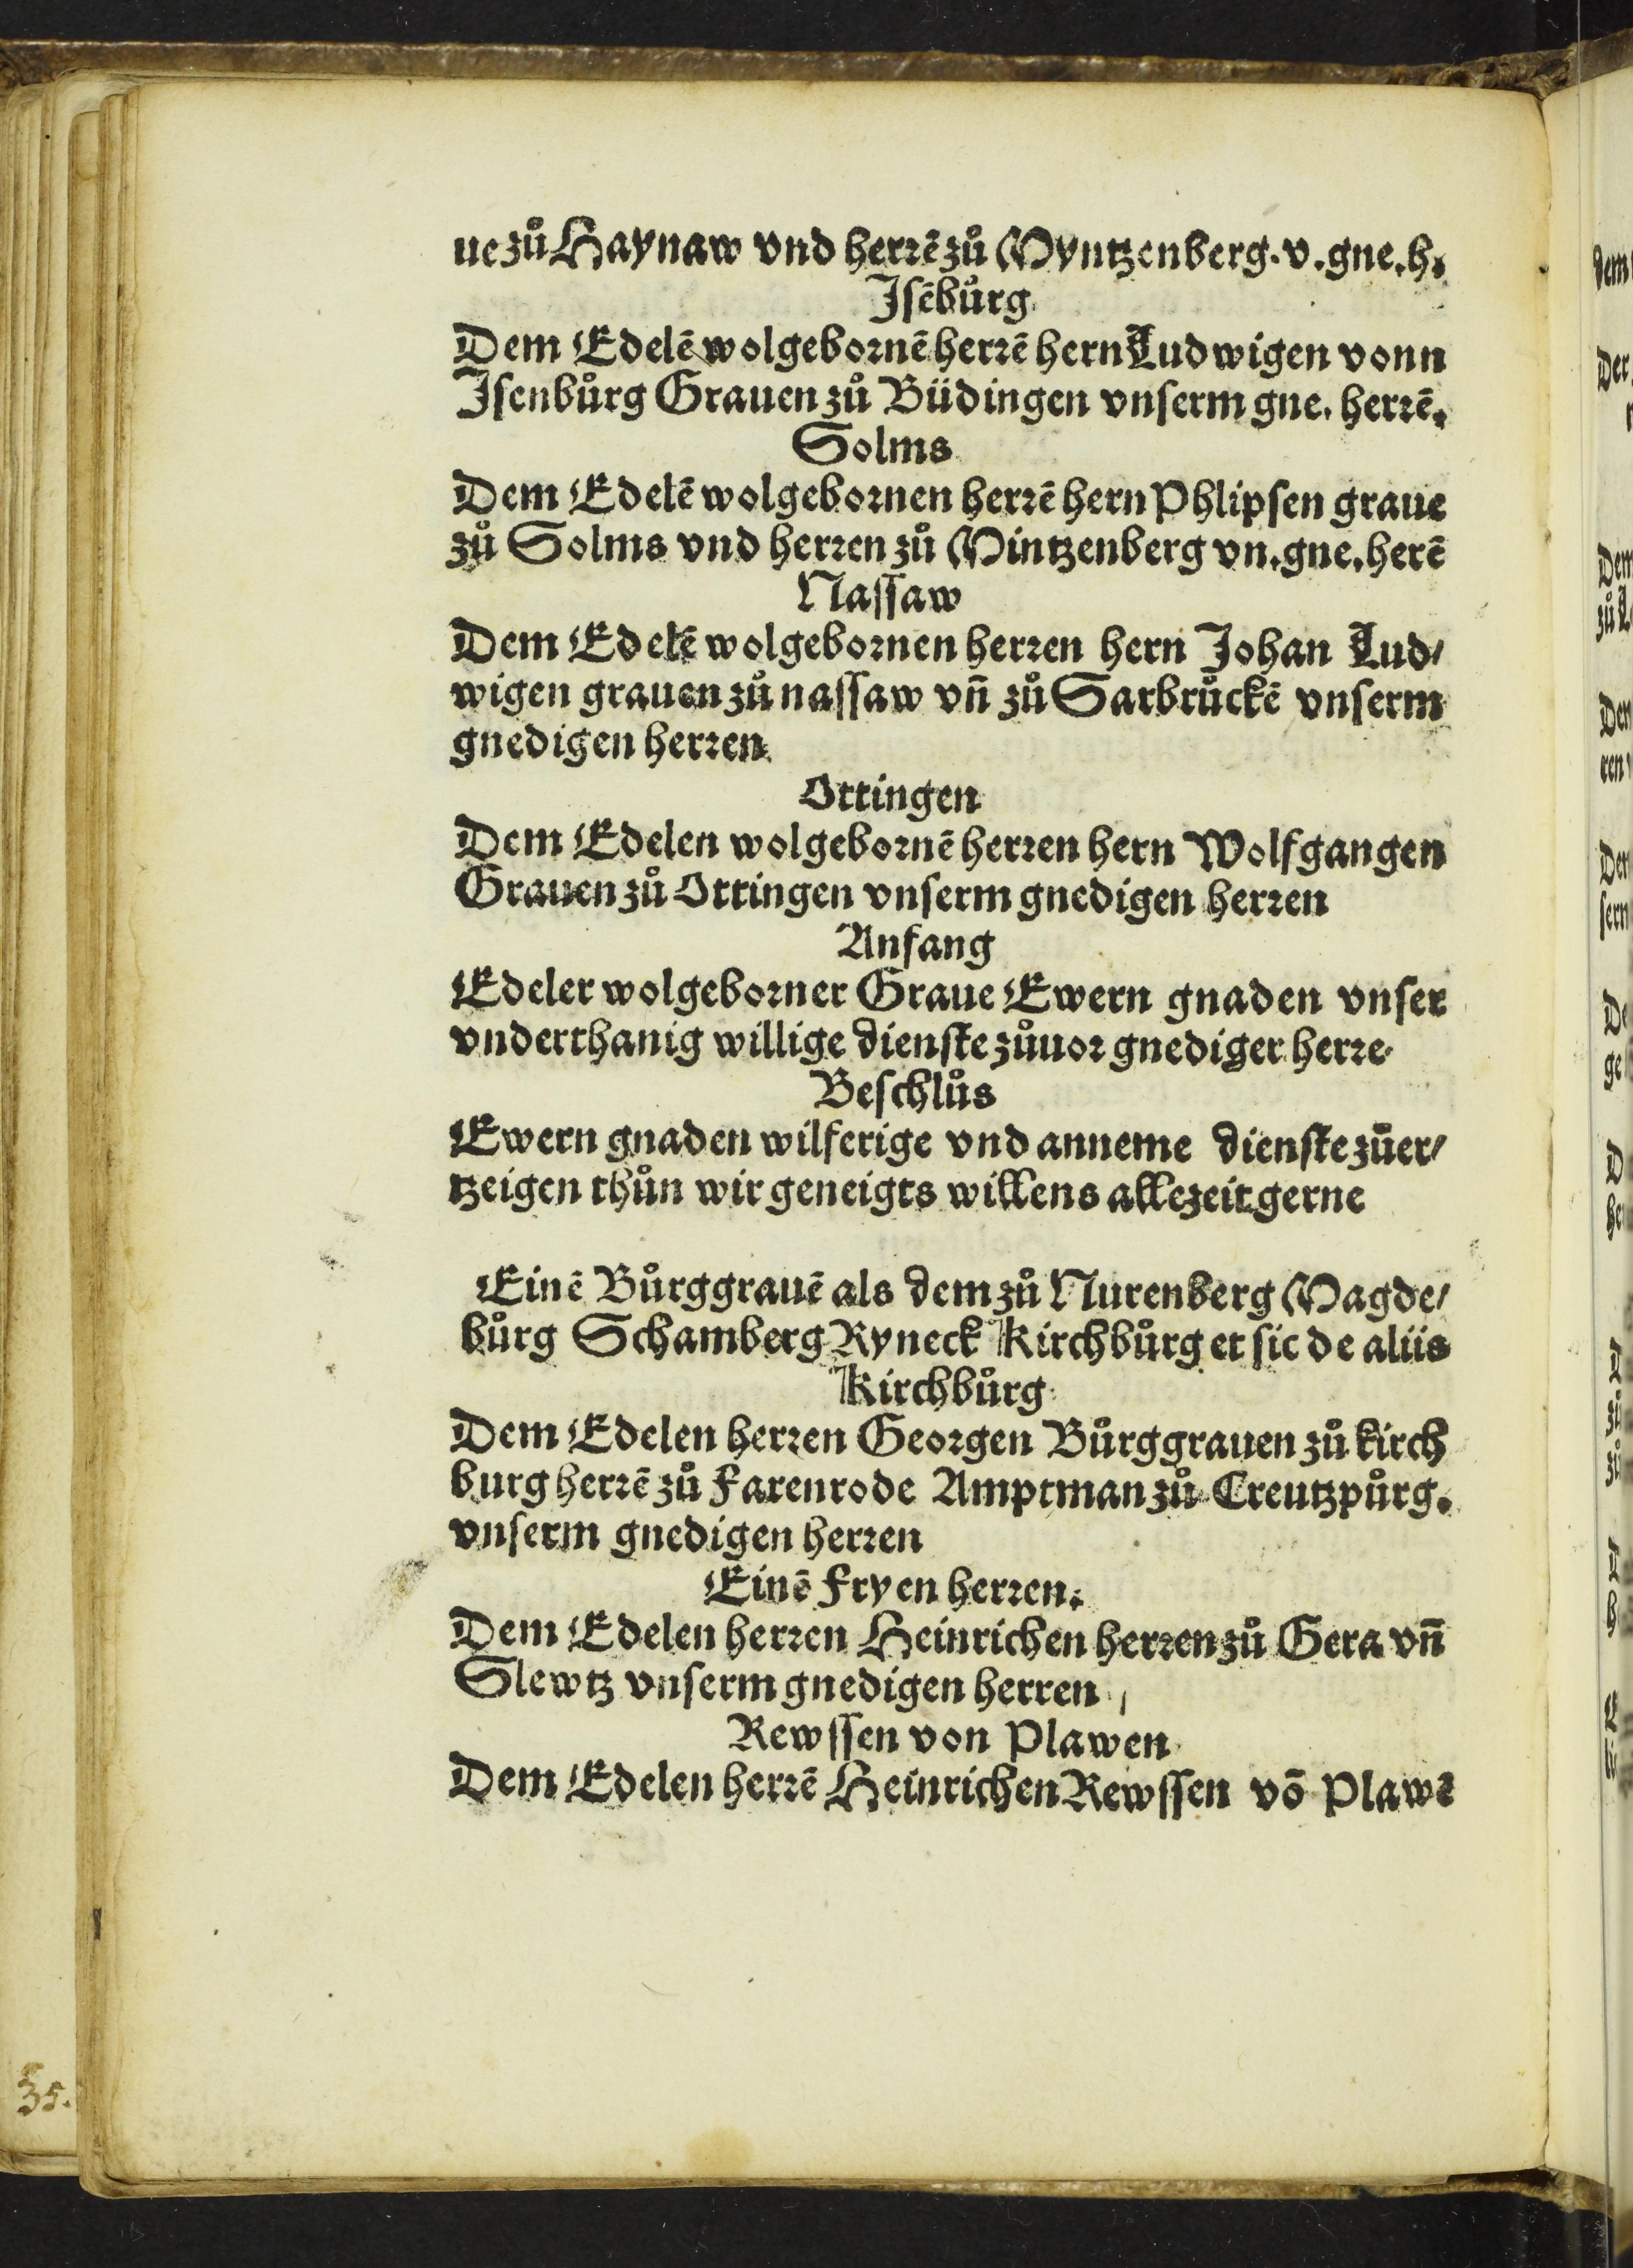 ue zů Haynaw vnd herrẽ zů Myntzenberg. v. gne. h.
Jsẽbůrg
Dem Edelẽ wolgebornẽ herrẽ hern Ludwigen vonn
Jsenbůrg Grauen zů Büdingen vnserm gne. herrẽ.
Solms
Dem Edelẽ wolgebornen herrẽ hern Phlipsen graue
zů Solms vnd herren zů Mintzenberg vn. gne. herẽ
Nassaw
Dem Edelẽ wolgebornen herren hern Johan Lud/
wigen grauen zů nassaw vñ zů Sarbrůckẽ vnserm
gnedigen herren
Ottingen
Dem Edelen wolgebornẽ herren hern Wolfgangen
Grauen zů Ottingen vnserm gnedigen herren
Anfang
Edeler wolgeborner Graue Ewern gnaden vnser
vnderthanig willige dienste zůuor gnediger herre
Beschlůs
Ewern gnaden wilferige vnd anneme dienste zůer/
tzeigen thůn wir geneigts willens allezeit gerne
Einẽ Bůrggrauẽ als dem zů Nurenberg Magde/
bůrg Schamberg Ryneck Kirchbůrg et sic de aliis
Kirchbůrg
Dem Edelen herren Georgen Bůrggrauen zů kirch
burg herrẽ zů Farenrode Amptman zů Creutzpůrg.
vnserm gnedigen herren
Einẽ Fryen herren.
Dem Edelen herren Heinrichen herren zů Gera vñ
Slewtz vnserm gnedigen herren
Rewssen von Plawen
Dem Edelen herrẽ Heinrichen Rewssen võ Plawẽ
35.